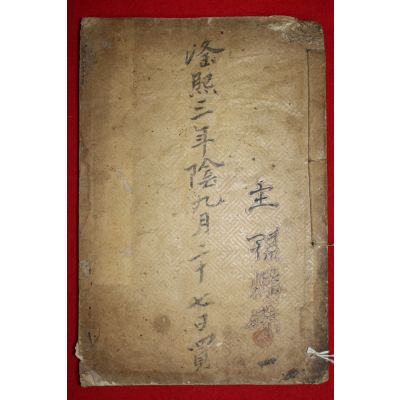 主
隆熙三年陰九月二十七日買